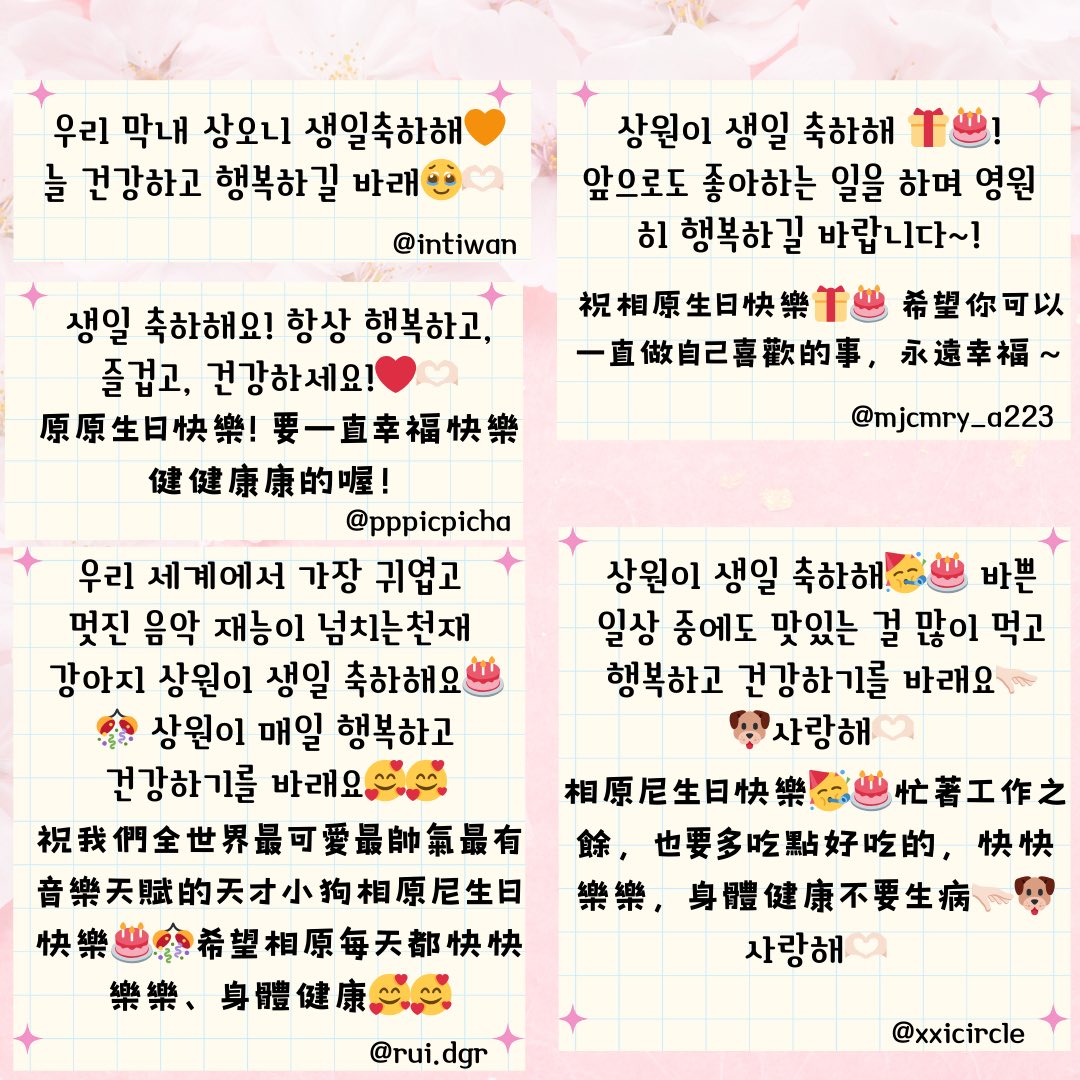 우리 막내 상오니 생일축하해🧡
늘 건강하고 행복하길 바래🥹🫶🏻
@intiwan
생일 축하해요! 항상 행복하고,
즐겁고, 건강하세요!❤️🫶🏻
原原生日快樂! 要一直幸福快樂
健健康康的喔!
@pppicpicha
우리 세계에서 가장 귀엽고
멋진 음악 재능이 넘치는천재
강아지 상원이 생일 축하해요🎂
🎊 상원이 매일 행복하고
건강하기를 바래요🥰🥰
祝我們全世界最可愛最帥氣最有
音樂天賦的天才小狗相原尼生日
快樂🎂🎊希望相原每天都快快
樂樂、身體健康🥰🥰
@rui.dgr
상원이 생일 축하해 🎁🎂!
앞으로도 좋아하는 일을 하며 영원
히 행복하길 바랍니다~!
祝相原生日快樂🎁🎂 希望你可以
一直做自己喜歡的事，永遠幸福～
@mjcmry_a223
상원이 생일 축하해🥳🎂 바쁜
일상 중에도 맛있는 걸 많이 먹고
행복하고 건강하기를 바래요🫳🏻
🐶사랑해🫶🏻
相原尼生日快樂🥳🎂忙著工作之
餘，也要多吃點好吃的，快快
樂樂，身體健康不要生病🫳🏻🐶
사랑해🫶🏻
@xxicircle